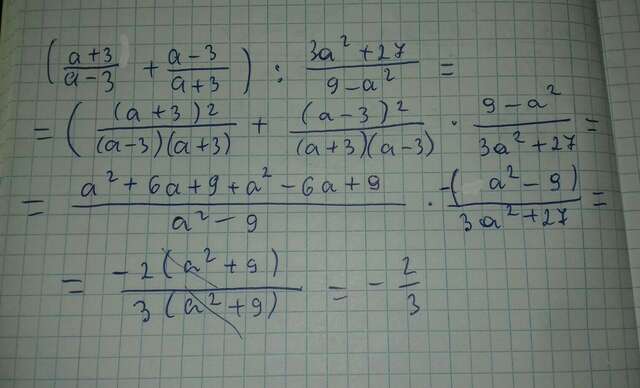 (a+3/a-3 + a-3/a+3) : 3a²+27/9-a² =
= ((a+3)²/(a-3)(a+3) + (a-3)²/(a+3)(a-3) · 9-a²/3a²+27 =
= a²+6a+9+a²-6a+9/a²-9 · -(a²-9)/3a²+27 =
= -2(a²+9)/3(a²+9) = -2/3